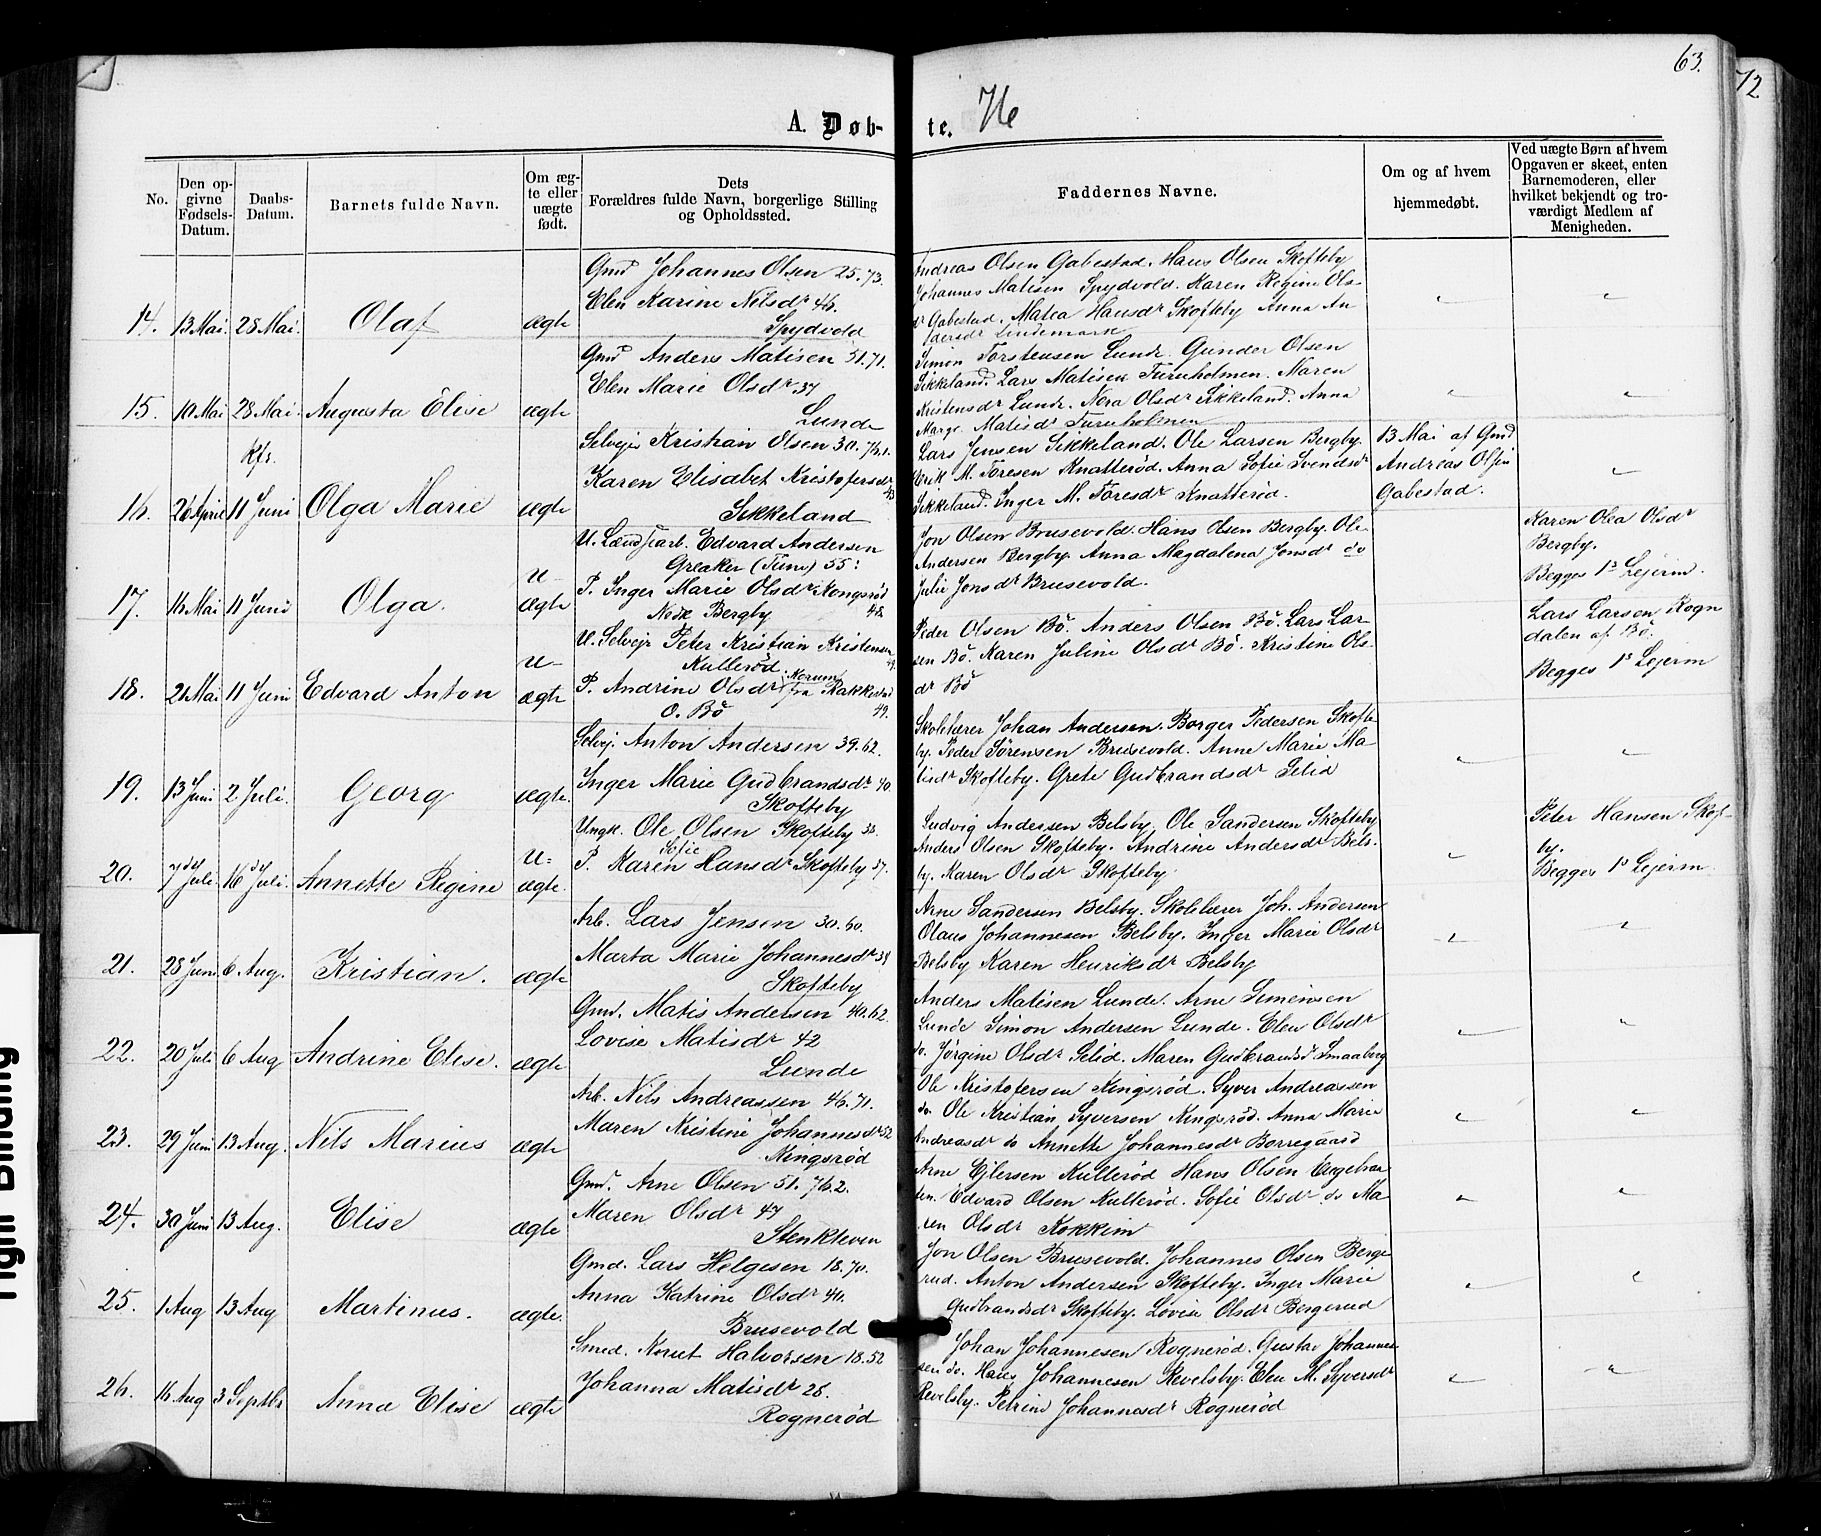 63.
72
A. Døb-
te. 76
No.
Den op-
givne
Fødsels-
Datum.
Daabs-
Datum.
Barnets fulde Navn.
Om æg-
te eller
uægte
født.
Dets
Forældres fulde Navn, borgerlige Stilling
og Opholdssted.
Faddernes Navne.
Om og af hvem
hjemmedøbt.
Ved uægte Børn af hvem
Opgaven er skeet, enten
Barnemoderen, eller
hvilket bekjendt og tro-
værdigt Medlem af
Menigheden.
14. 13 Mai. 28 Mai. Olaf ægte
Gmd Johannes Olsen 25.73.
Elen Karine Nilsdr 46.
Spydvold
Andreas Olsen Gabestad. Hans Olsen Skofteby
Johannes Matisen Spydvold. Karen Regine Ols-
dr Gabestad. Matea Hansdr Skofteby Anna An
dersdr Lindemark
15. 10 Mai 28 Mai. Augusta Elise ægte
Gmd Anders Matisen 51.71.
Elen Marie Olsdr 37
Lunde
Simon Torstensen Lunde. Gunder Olsen
Sikkeland. Lars Matisen Furuholmen. Maren
Kristensdr Lunde. Nora Olsdr Sikkeland. Anna
Marge. Matisdr Furuholmen
16. 26 April Kfr. 11 Juni Olga Marie ægte
Selvejer Kristian Olsen 30.76.1.
Karen Elisabet Kristofersdr 43
Sikkeland
Lars Jensen Sikkeland. Ole Larsen Bergby.
Erik M. Toresen Knatterød. Anna Sofie Svendsdr
Sikkeland. Inger M. Toresdr Knatterød.
13 Mai af Gmd
Andreas Olsen
Gabestad.
17. 16 Mai 11 Juni Olga. u-
ægte
U. Landbarb. Edvard Andersen
Greaker (Tune) 55:
P. Inger Marie Olsdr Kongsrød
Nedr Bergby 48.
Jon Olsen Brusevold. Hans Olsen Bergby. Ole
Andersen Bergby. Anna Magdalena Jonsdr do
Julie Jonsdr Brusevold.
Karen Olea Olsdr
Bergby.
Begges 1s Lejerm.
18. 21 Mai 11 Juni Edvard Anton u-
ægte
U. Selvejr Peter Kristian Kristensen
Kullerød. 49.
P. Andrine Olsdr fra Rakkestad
O. Bö 49.
Peder Olsen Bö. Anders Olsen Bö. Lars Lar-
sen Bö. Karen Juline Olsdr Bö. Kristine Ols-
dr Bö
Lars Larsen Rogn
dalen af Bö.
Begges 1s Lejerm
19. 13 Juni 2 Juli. Georg ægte.
Selvej. Anton Andersen 39.62.
Inger Marie Gudbrandsdr 40.
Skofteby
Skolelærer Johan Andersen. Borger Pedersen Skofte-
by. Peder Sörensen Brusevold. Anne Marie Ma-
tisdr Skofteby. Grete Gudbrandsdr Selid
20. 7de Juli 16de Juli. Annette Regine u-
ægte.
Ungk. Ole Olsen Skofteby 53.
P. Karen Sofie Hansdr Skofteby 57.
Ludvig Andersen Belsby. Ole Sandersen Skofteby
Anders Olsen Skofteby. Andrine Andersdr Bels-
by. Karen Olsdr Skofteby.
Peter Hansen Skof-
by.
Begges 1s Lejerm.
21. 28 Juni 6 Aug. Kristian. ægte
Arb. Lars Jensen 30.60.
Marta Marie Johannesdr 39
Skofteby
Arne Sandersen Belsby. Skolelærer Joh. Andersen
Olaus Johannesen Belsby. Inger Marie Olsdr
Belsby Karen Henriksdr Belsby
22. 20 Juli 6 Aug Andrine Elise. ægte
Gmd. Matis Andersen 40.62.
Lovise Matisdr 42
Lunde
Anders Matisen Lunde. Arne Simensen
Lunde Simon Andersen Lunde. Elen Olsdr
do. Jörgine Olsdr Selid. Maren Gudbrandsd Smaaberg
23. 29 Juni 13 Aug. Nils Marius ægte
Arb. Nils Andreassen 46.71.
Maren Kristine Johannesdr 52
Ringsrød
Ole Kristofersen Ringsrød. Syver Andreassen
do. Ole Kristian Syversen Ringsrød. Anna Marie
Andreasdr do Annette Johannesdr Borregaard
24. 30 Juni 13 Aug. Elise ægte
Gmd. Arne Olsen 51. 76.2.
Maren Olsdr 47
Stenkleven
Arne Ejlersen Kullerød Hans Olsen Engebrae
ten. Edvard Olsen Kullerød. Sofie Olsdr do Ma
ren Olsdr Kokkim
25. 1 Aug 13 Aug Martinus. ægte.
Gmd. Lars Helgesen 18.70.
Anna Katrine Olsdr 40.
Brusevold
Jon Olsen Brusevold. Johannes Olsen Berge
rud. Anton Andersen Skofteby. Inger Marie
Gudbrandsdr Skofteby. Lovise Olsdr Bergerud
26. 16 Aug 3 Septbr Anna Elise ægte
Smed. Knut Halvorsen 18.52
Johanna Matisdr 28.
Rognerød
Johan Johannesen Rognerød. Gustav Johannes-
sen do. Hans Johannesen Revelsby. Elen M. Syversdr
Revelsby. Petrine Johannesdr Rognerød
Tight Binding